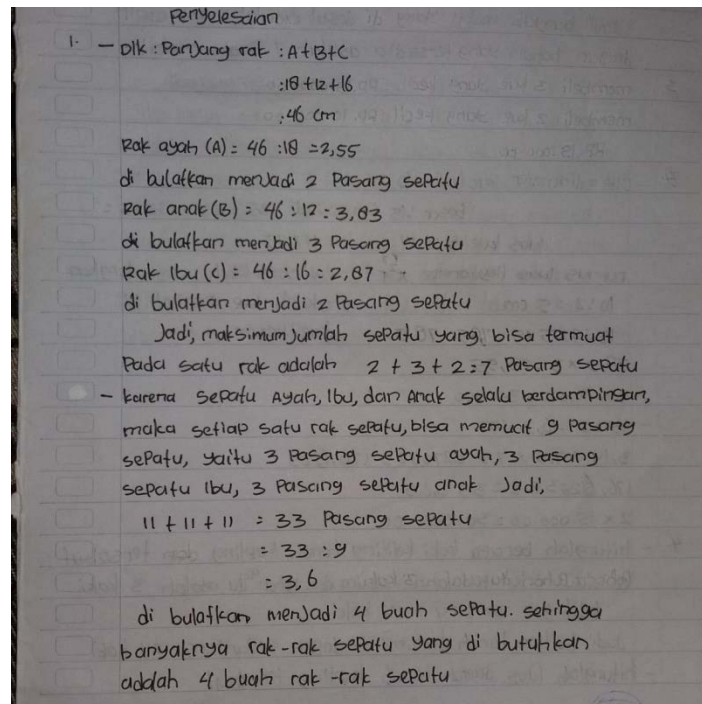 Penyelesaian
1. - Dik : Panjang rak : A+B+C
:18 +12 +16
:46 cm
Rak ayah (A) = 46 :18 = 2,55
di bulatkan menjadi 2 Pasang sepatu
Rak anak (B) = 46 : 12 : 3,83
di bulatkan menjadi 3 Pasang sepatu
Rak Ibu (C) = 46 : 16 : 2,87
di bulatkan menjadi 2 Pasang sepatu
Jadi, maksimum jumlah sepatu yang bisa termuat
Pada satu rak adalah 2 + 3 + 2 = 7 Pasang sepatu
- karena sepatu Ayah, Ibu, dan Anak selalu berdampingan,
maka setiap satu rak sepatu, bisa memuat 9 Pasang
sepatu, yaitu 3 Pasang sepatu ayah, 3 Pasang
sepatu Ibu, 3 Pasang sepatu anak Jadi,
11 + 11 + 11 = 33 Pasang sepatu
= 33 : 9
= 3,6
di bulatkan menjadi 4 buah sepatu. sehingga
banyaknya rak-rak sepatu yang di butuhkan
adalah 4 buah rak-rak sepatu